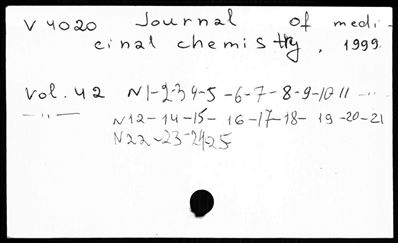 V 4020 Journal of medi-
cinal chemistry, 1999
Vol. 42 N1-2-3 4-5-6-7-8-9-10 11 -..-
-..- N12-14-15-16-17-18-19-20-21
N22-23-24-25